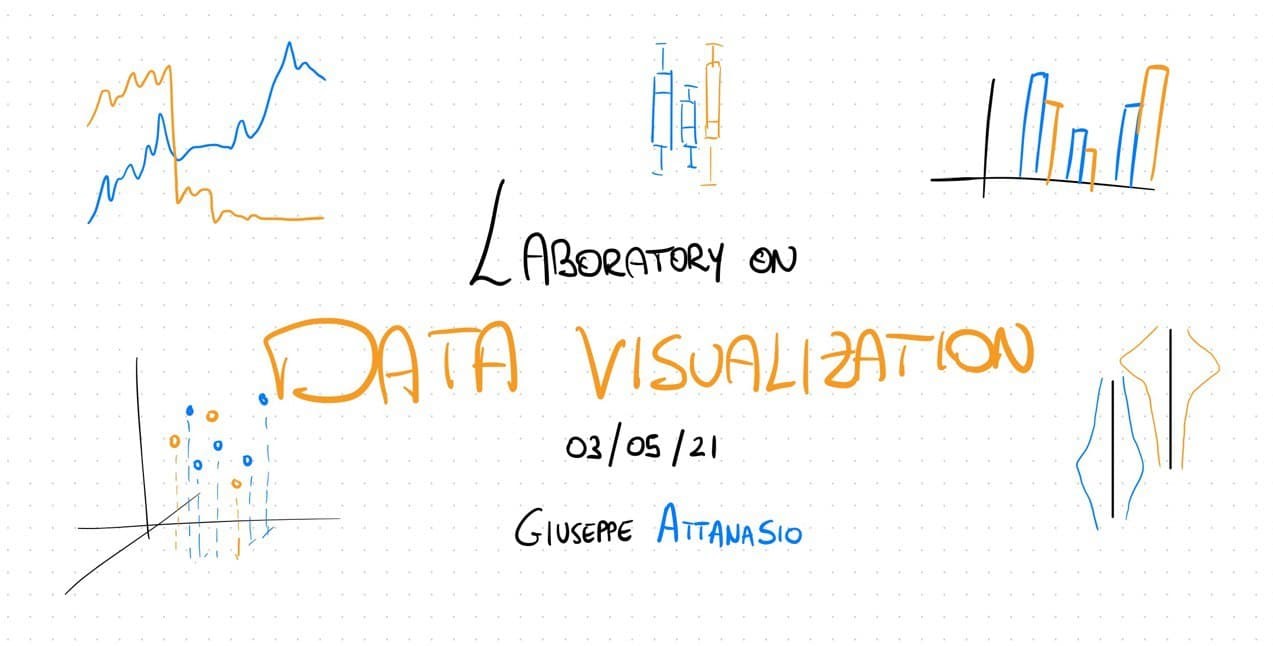 LABORATORY ON
DATA VISUALIZATION
03/05/21
GIUSEPPE ATTANASIO